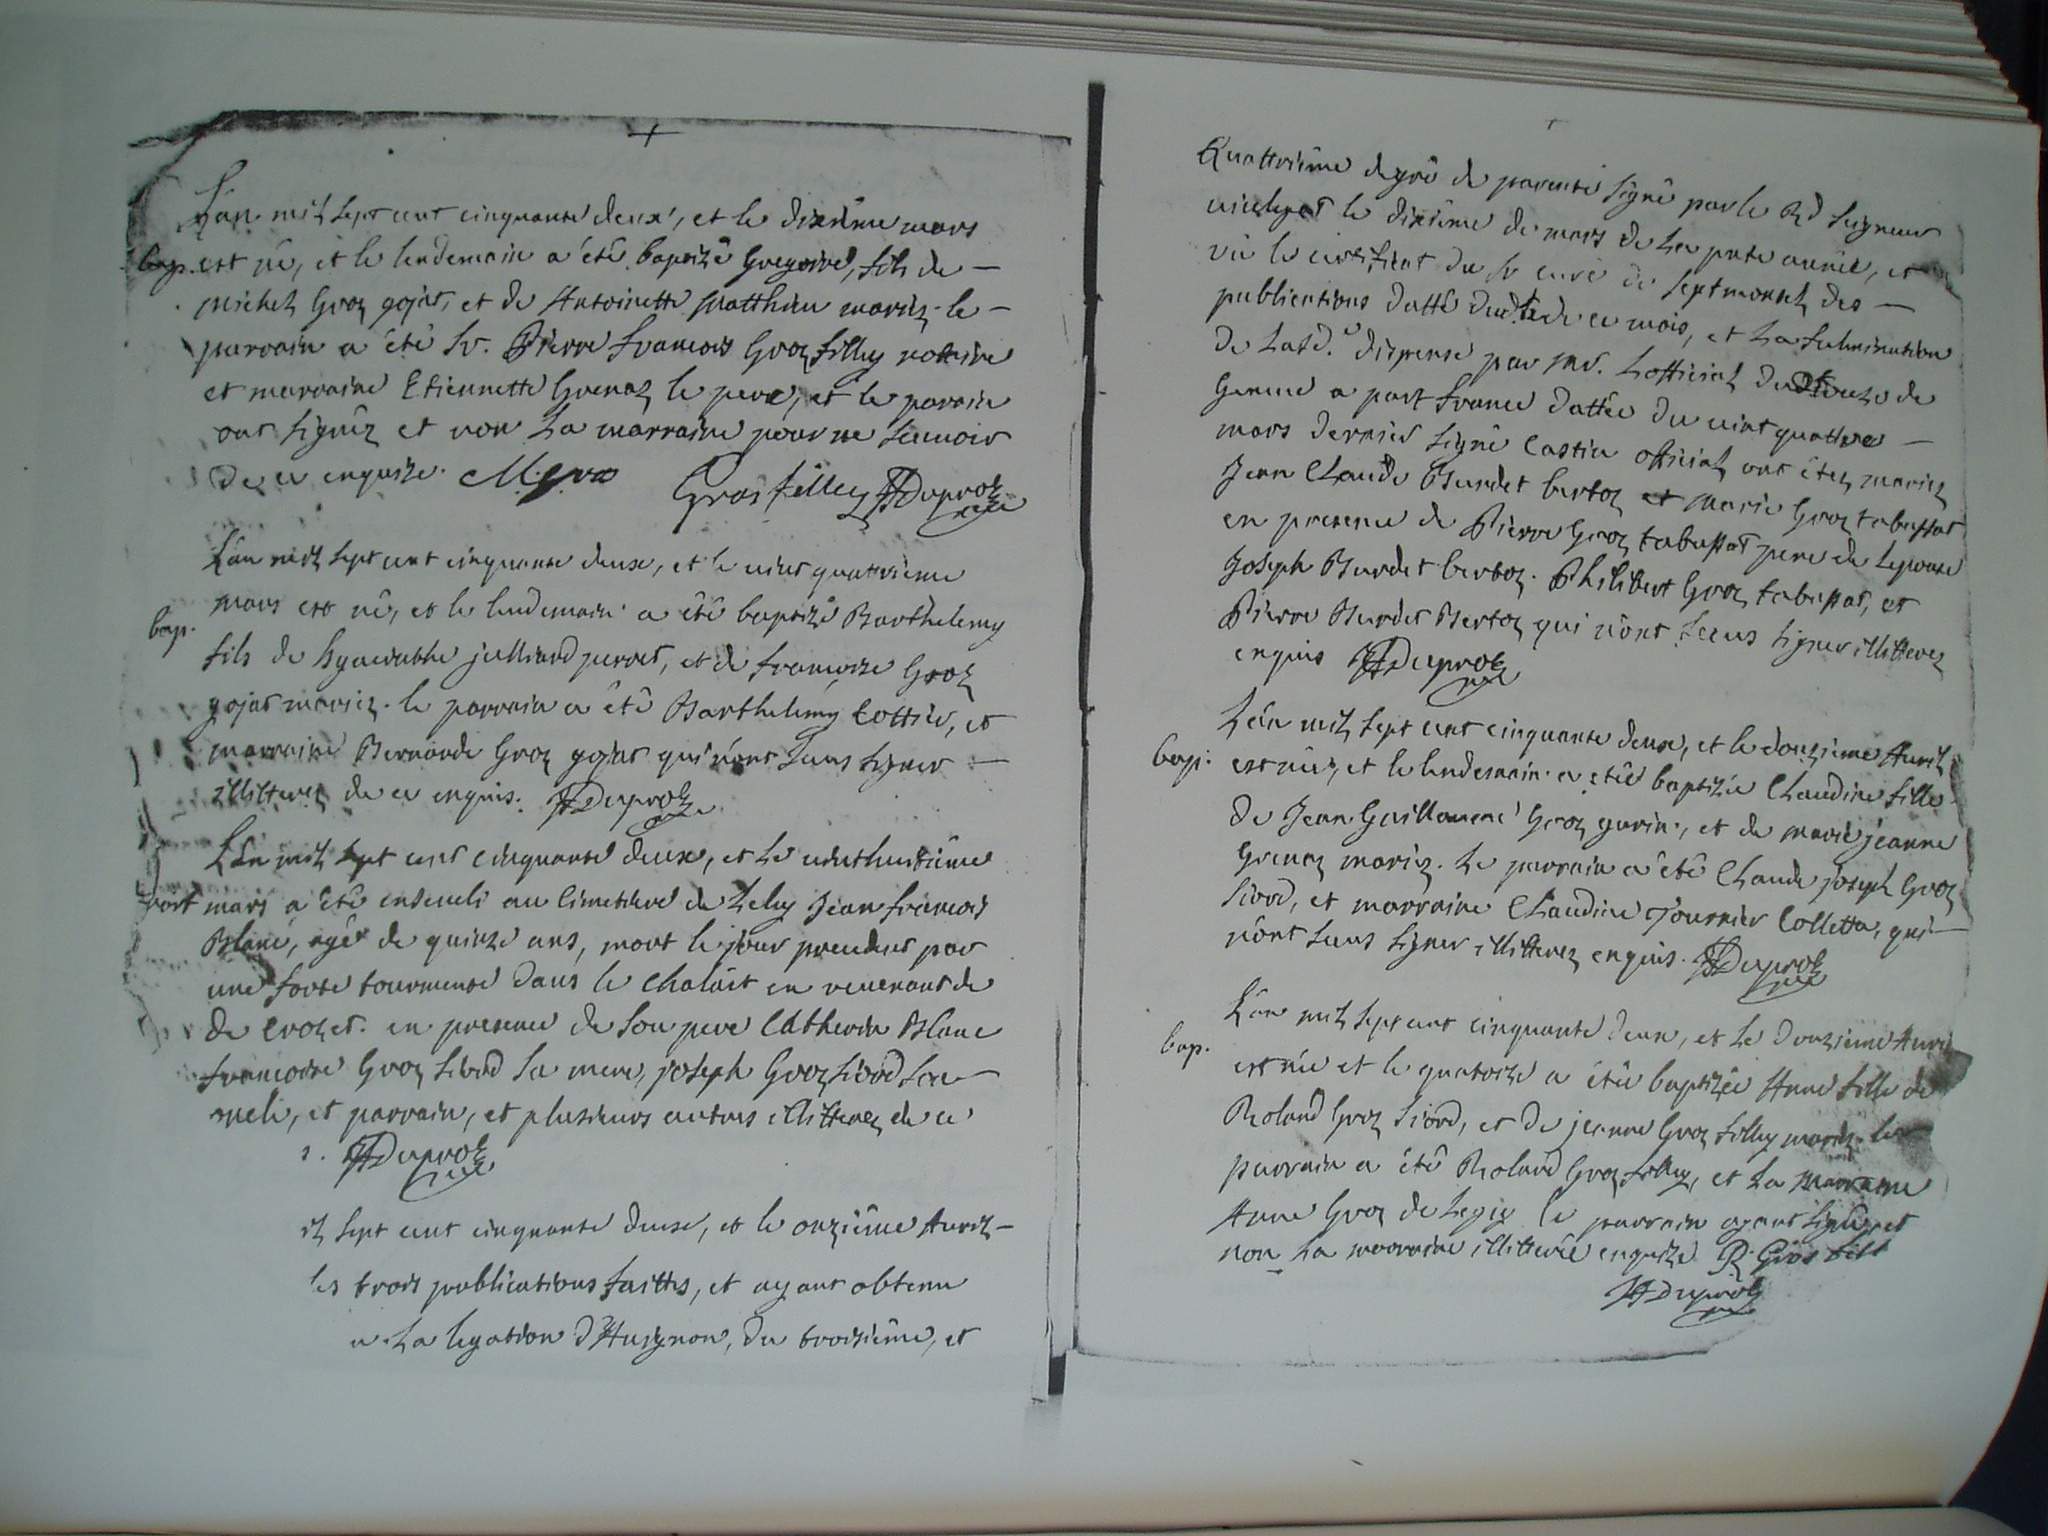 L'an mil sept cent cinquante deux, et le dixième mars
bap. est né, et le lendemain a été baptizé Gregoire, fils de
michel Groz gojat, et de Antoinette Matthieu mariez. le
parrain a été Sr. Pierre francois Groz filley notaire
et marraine Etiennette Grenaz le pere, et le parrain
ont signéz et non La marraine pour ne scauoir
de ce enquise. M gro Gros filley Duproz
L'an mil sept cent cinquante deux, et le uint quatrieme
mars est né, et le lendemain a été baptizé Barthelemy
bap.
fils de hyacinthe julliard perret, et de francoise Groz
gojat mariez. le parrain a été Barthelemy Cottier, et
marraine Bernarde Groz gojat qui n'ont sceus signer
illitterez de ce enquis. Duproz
L'an mil sept cent cinquante deux, et Le uinthuitième
mort mars a été enseueli au Cimetiere de Lelex Jean francois
Blanc, agé de quinze ans, mort le jour precedent par
une forte tourmente dans le Chalait en reuenant de
de Crozet. en presence de son pere Catherin Blanc
francoise Groz Siord sa mere, joseph Groz Siord son
oncle, et parrain, et plusieurs autres illitterez de ce
s. Duproz
il sept cent cinquante deux, et le onzième Auril
les trois publications faittes, et ayant obtenu
a La legation d'Auignon, du troisième, et
Quattrième degré de parenté signé par le Rd Seigneur
uicelegat le dixième de mars de La pnte année, et
vû le certificat du Sr curé de Septmoncel des
publications datté du de ce mois, et La fulmination
de Lad.e dispense par Mr. Lofficial du Dioceze de
Geneue a part france dattée du uint quattre
mars dernier signé Castin official, ont étez mariez
Jean Claude Burdet bertoz et Marie Groz tabussat
en presence de Pierre Groz tabussat pere de Lepouse
Joseph Burdet bertoz. Philibert Groz tabussat, et
Pierre Burdet Bertoz qui n'ont sceus signer illitterez
enquis Duproz
L'an mil sept cent cinquante deux, et le douzieme Auril
bap. est née, et le lendemain a etée baptizée Claudine fille
de Jean Guillaume Groz gurin, et de marie jeanne
Grenaz mariez. Le parrain a été Claude joseph Groz
Siord, et marraine Claudine Fournier Colletta, qui
n'ont sceus signer illitterez enquis. Duproz
L'an mil sept cent cinquante deux, et Le Douzieme Auril
bap.
est née et le quatorze a étée baptizée Anne fille de
Roland Groz Siord, et de jeanne Groz filley mariez. Le
parrain a été Roland Groz filley, et La marraine
Anne Groz de Legiz le parrain ayant signé, et
non La marraine illitterée enquize R Gros fill
Duproz